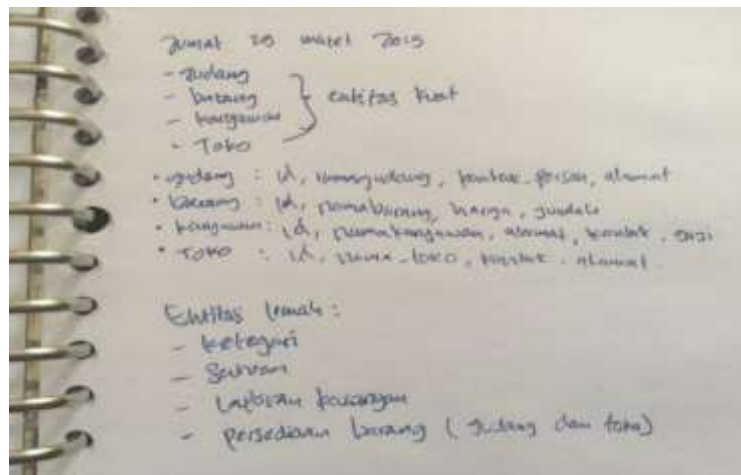 Jumat 20 maret 2015
- gudang
- barang
- karyawan
- Toko
} entitas kuat
• gudang : id, namagudang, kontak_person, alamat
• barang : id, namabarang, harga, jumlah
• karyawan : id, namakaryawan, alamat, kontak, gaji
• TOKO : id, nama_toko, kontak, alamat.
Entitas lemah :
- kategori
- satuan
- Laporan keuangan
- persediaan barang ( gudang dan toko)